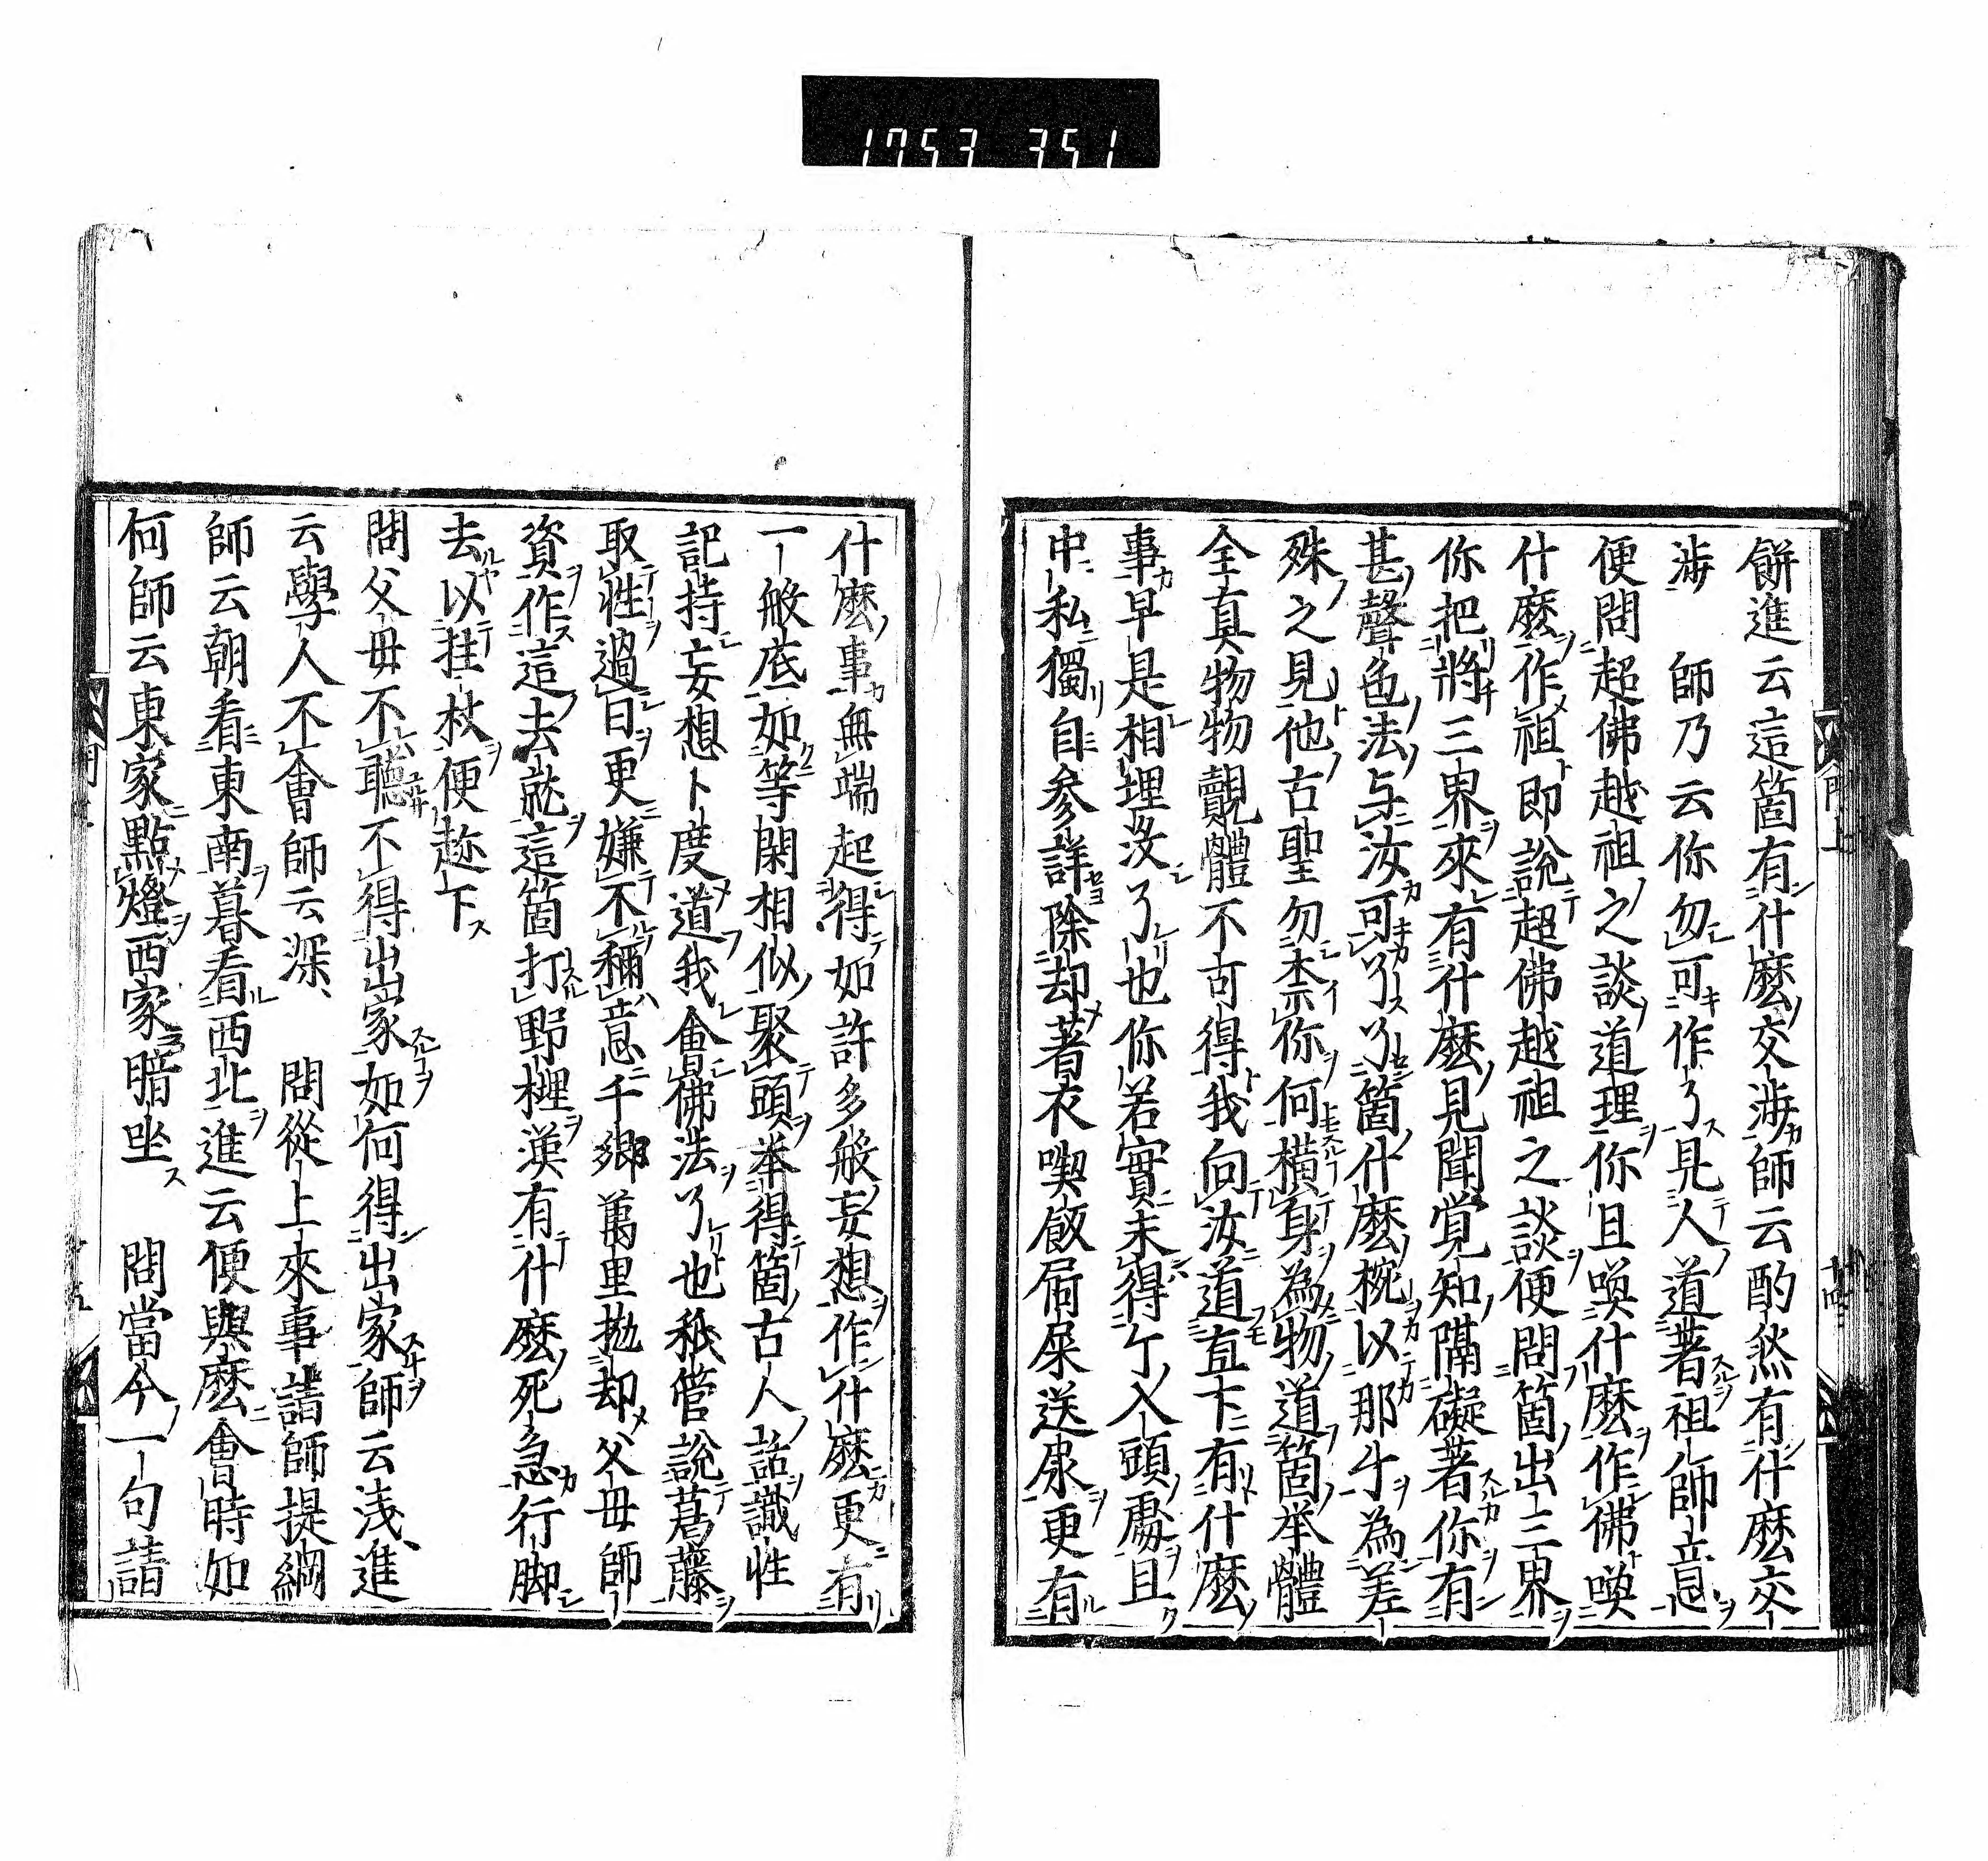 1753 351
餅進云這箇有什麽交涉師云酌然有什麽交
涉　師乃云你勿可作了見人道著祖師意
便問超佛越祖之談道理你且喚什麽作佛喚
什麽作祖即說超佛越祖之談便問箇出三界
你把將三界來有什麽見聞覚知隔礙著你有
甚聲色法与汝可了了箇什麽椀以那个為差
殊之見他古聖勿柰你何橫身為物道箇举體
全真物物覿體不可得我向汝道直下有什麽
事早是相埋没了也你若實未得个入頭處且
中私獨自参詳除却著衣喫飯屙屎送尿更有
什麽事無端起得如許多般妄想作什麽更有
一般底如等閑相似聚頭举得箇古人話識性
記持妄想卜度道我會佛法了也秖管說葛藤
取性過日更嫌不稱意千郷萬里抛却父母師
資作這去就這箇打野榸漢有什麽死急行脚
去以拄杖便趂下
問父母不聽不得出家如何得出家師云浅進
云學人不會師云深　問從上來事請師提綱
師云朝看東南暮看西北進云便與麽會時如
何師云東家點燈西家暗坐　問當今一句請